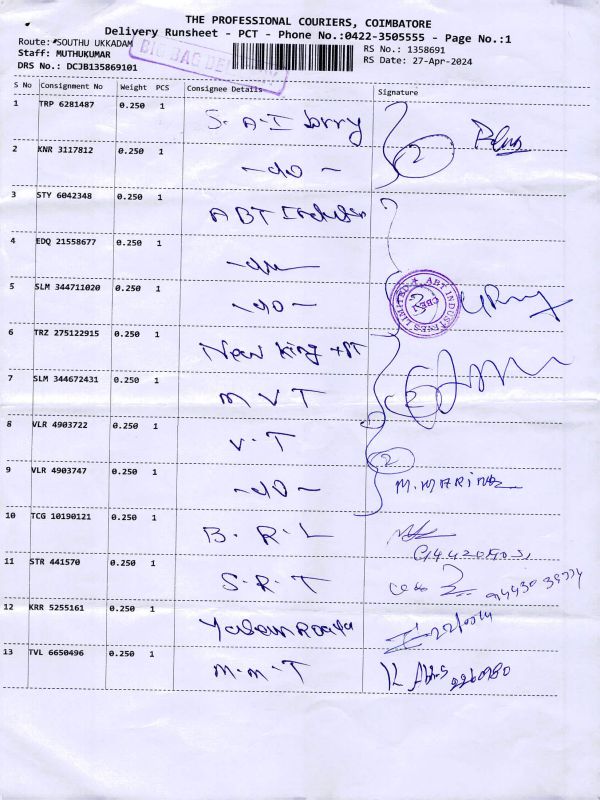 THE PROFESSIONAL COURIERS, COIMBATORE
Delivery Runsheet - PCT - Phone No.:0422-3505555 - Page No.:1
Route: SOUTHU UKKADAM
Staff: MUTHUKUMAR
DRS No.: DCJB135869101
RS No.: 1358691
RS Date: 27-Apr-2024
BIG BAG
S No Consignment No Weight PCS Consignee Details Signature
1 TRP 6281487 0.250 1 S.A.I lorry
2 KNR 3117812 0.250 1 -do- 2
3 STY 6042348 0.250 1 ABT
4 EDQ 21558677 0.250 1
5 SLM 344711020 0.250 1 -do-
ABT INDUSTRIES LIMITED
CBE
3
6 TRZ 275122915 0.250 1 New King
7 SLM 344672431 0.250 1 M V T 2
8 VLR 4903722 0.250 1 V.T
9 VLR 4903747 0.250 1 -do- 2
10 TCG 10190121 0.250 1 B.R.L
11 STR 441570 0.250 1 S.R.T
12 KRR 5255161 0.250 1
13 TVL 6650496 0.250 1 M.M.T